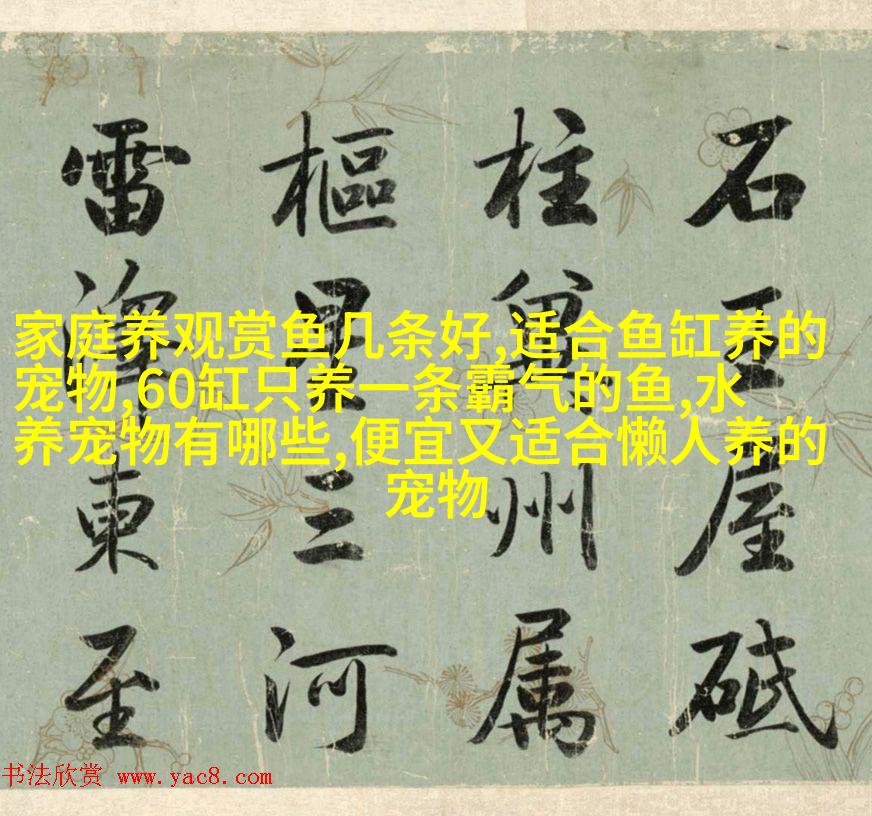 石王屋砥
柱冀州属
樞星三河
雷澤東至
家庭养观赏鱼几条好,适合鱼缸养的
宠物,60缸只养一条霸气的鱼,水
养宠物有哪些,便宜又适合懒人养的
宠物
书法欣赏 www.yac8.com